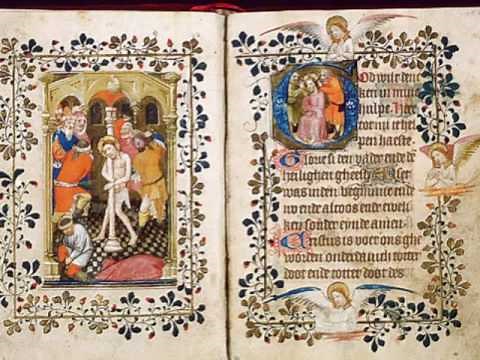 God wilt den
ken in mire
hulpe Here
com mi te hel
pen haeste
Glorie si den vader ende de
heilighen gheest Alset
was inden beghinne ende
nu ende altoos ende ewelic
ke sonder eynde amen
Cristus is voer ons ghe
worden onderdanich totter
doot ende totter doot des